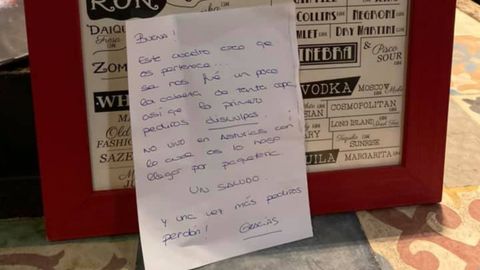 RON
DAIQU
Fresa
ZOM
WH
MAN
Old
FASHION
SAZE
COLLINS
NEGRONI
GIMLET
DRY MARTINI
GINEBRA
& Pisco
SOUR
VODKA
MOSCOW MU
COSMOPOLITAN
LONG ISLAND
Tequila
SUNRISE
MARGARITA
BUENAS!
Este cuadro creo que
os pertenece...
se nos fué un poco
la cabeza de tanta copa
así que lo primero
pediros disculpas.
No vivo en Asturias con
lo cual os lo hago
llegar por paquetería.
UN SALUDO.
Y una vez más pediros
perdón! GRACIAS